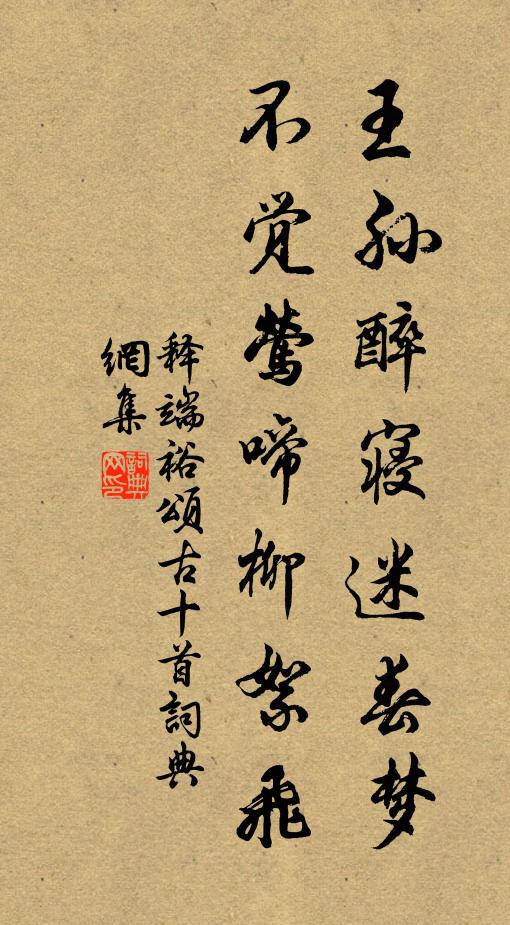 王孙醉寝迷春梦
不觉莺啼柳絮飞
释端裕颂古十首詞典
網集
詞典网印